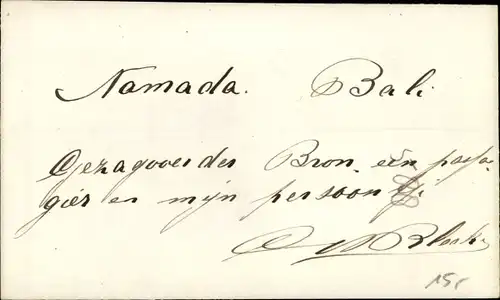 Namada. Bali
Gezagvoerder Bron, één passa-
gier en mijn persoon
15,-